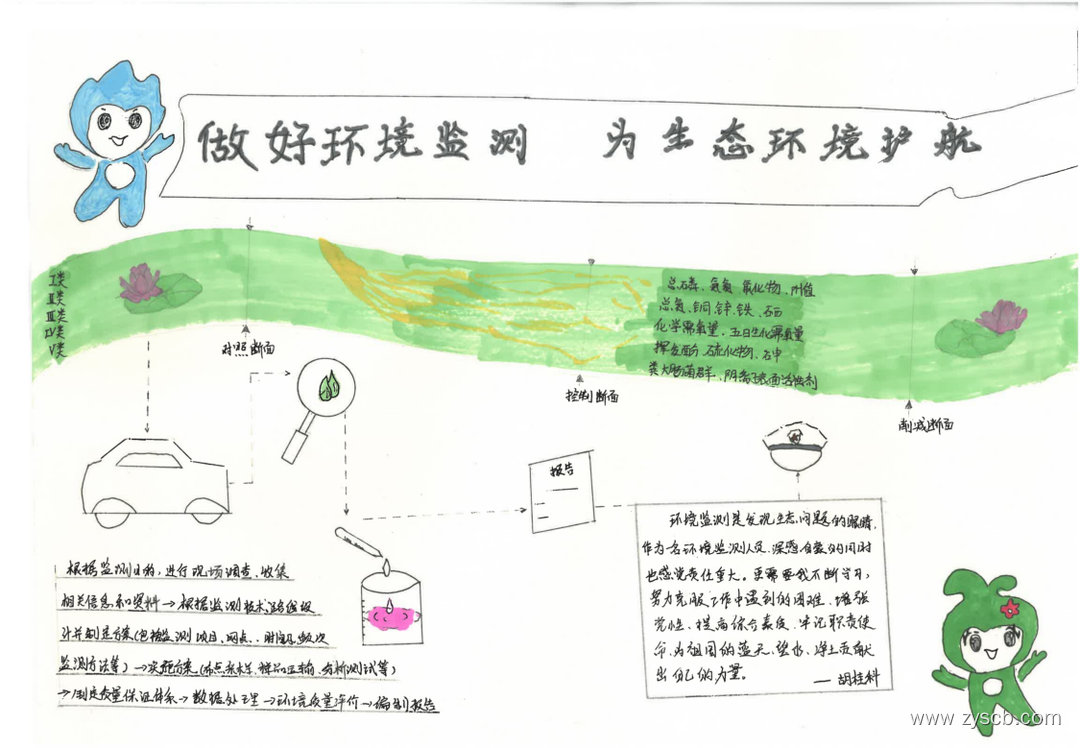 做好环境监测 为生态环境护航
I类
II类
III类
IV类
V类
总磷、氨氮、氟化物、PH值
总氮、铜、锌、铁、石西
化学需氧量、五日生化需氧量
挥发酚、硫化物、石申
类大肠菌群、阴离子表面活性剂
对照断面
控制断面
削减断面
报告
环境监测是发现生态问题的眼睛,
作为一名环境监测人员,深感自豪的同时
也感觉责任重大。更需要我不断学习,
努力克服工作中遇到的困难、增强
党性、提高综合素质、牢记职责使
命,为祖国的蓝天、碧水、净土贡献
出自己的力量。
— 胡桂科
根据监测目的,进行现场调查、收集
相关信息和资料→根据监测技术路线设
计并制定方案(包括监测项目、网点、时间、频次
监测方法等)→实施方案(布点采样、样品运输、分析测试等)
→制定质量保证体系→数据处理→环境质量评价→编制报告
www.zyscb.com